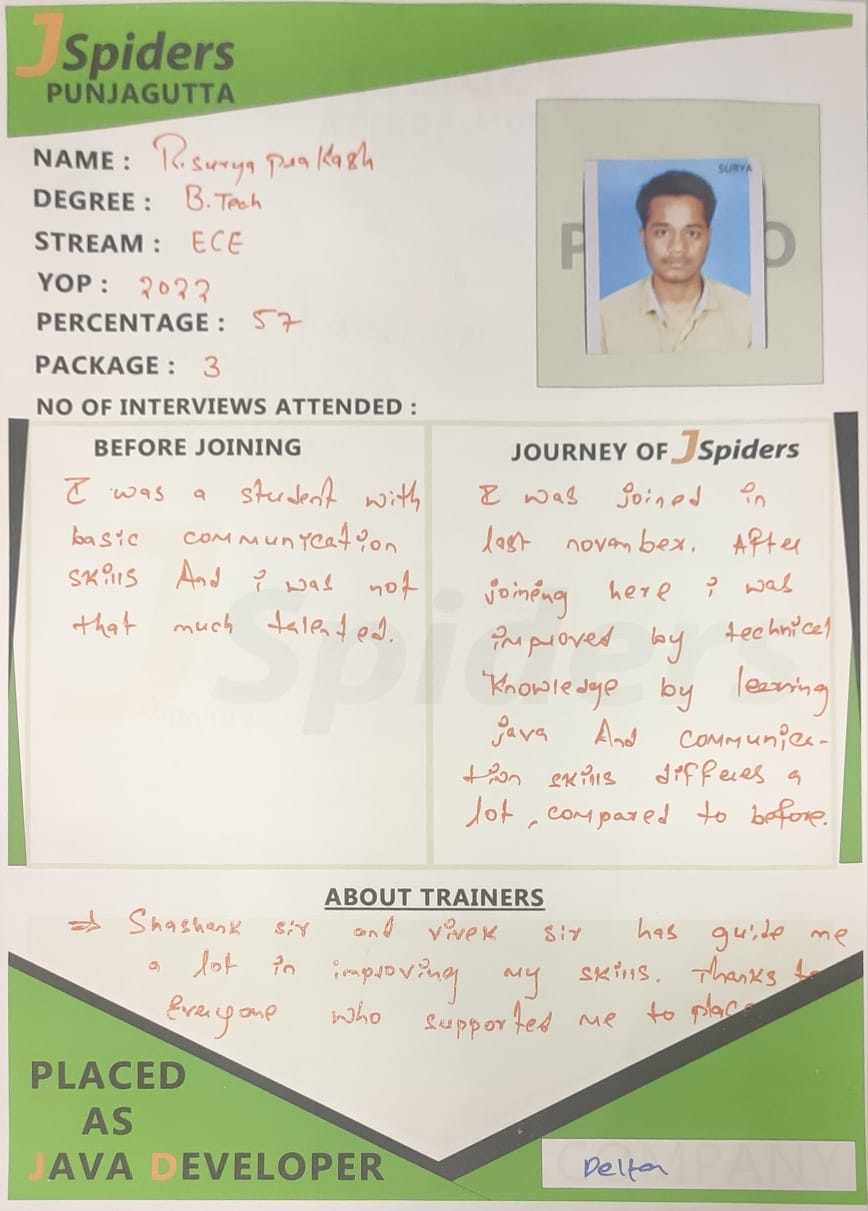 JSpiders
PUNJAGUTTA
NAME : R. Surya prakash
SURYA
DEGREE : B.Tech
STREAM : ECE
YOP : 2022
PERCENTAGE : 57
PACKAGE : 3
NO OF INTERVIEWS ATTENDED :
BEFORE JOINING
I was a student with
basic communication
skills And i was not
that much talented.
JOURNEY OF JSpiders
I was joined in
last november. After
joining here i was
improved by technical
knowledge by learning
java And communica-
tion skills differes a
lot, compared to before.
ABOUT TRAINERS
⇒ Shashank sir and vivek sir has guide me
a lot in improving my skills. Thanks to
Everyone who supported me to place
PLACED
AS
JAVA DEVELOPER
COMPANY
Delta